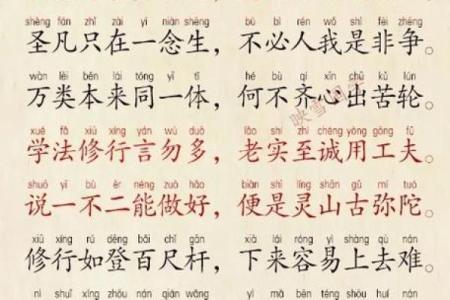 shèng fán zhǐ zài yí niàn shēng bù bì rén wǒ shì fēi zhēng
圣凡只在一念生，不必人我是非争。
wàn lèi běn lái tóng yì tǐ hé bù qí xīn chū kǔ lún
万类本来同一体，何不齐心出苦轮。
xué fǎ xiū xíng yán wù duō lǎo shi zhì chéng yòng gōng fū
学法修行言勿多，老实至诚用工夫。
shuō yī bù èr néng zuò hǎo biàn shì líng shān gǔ mí tuó
说一不二能做好，便是灵山古弥陀。
xiū xíng rú dēng bǎi chǐ gān xià lái róng yì shàng qù nán
修行如登百尺杆，下来容易上去难。
nì shuǐ xíng zhōu nán qián wàng